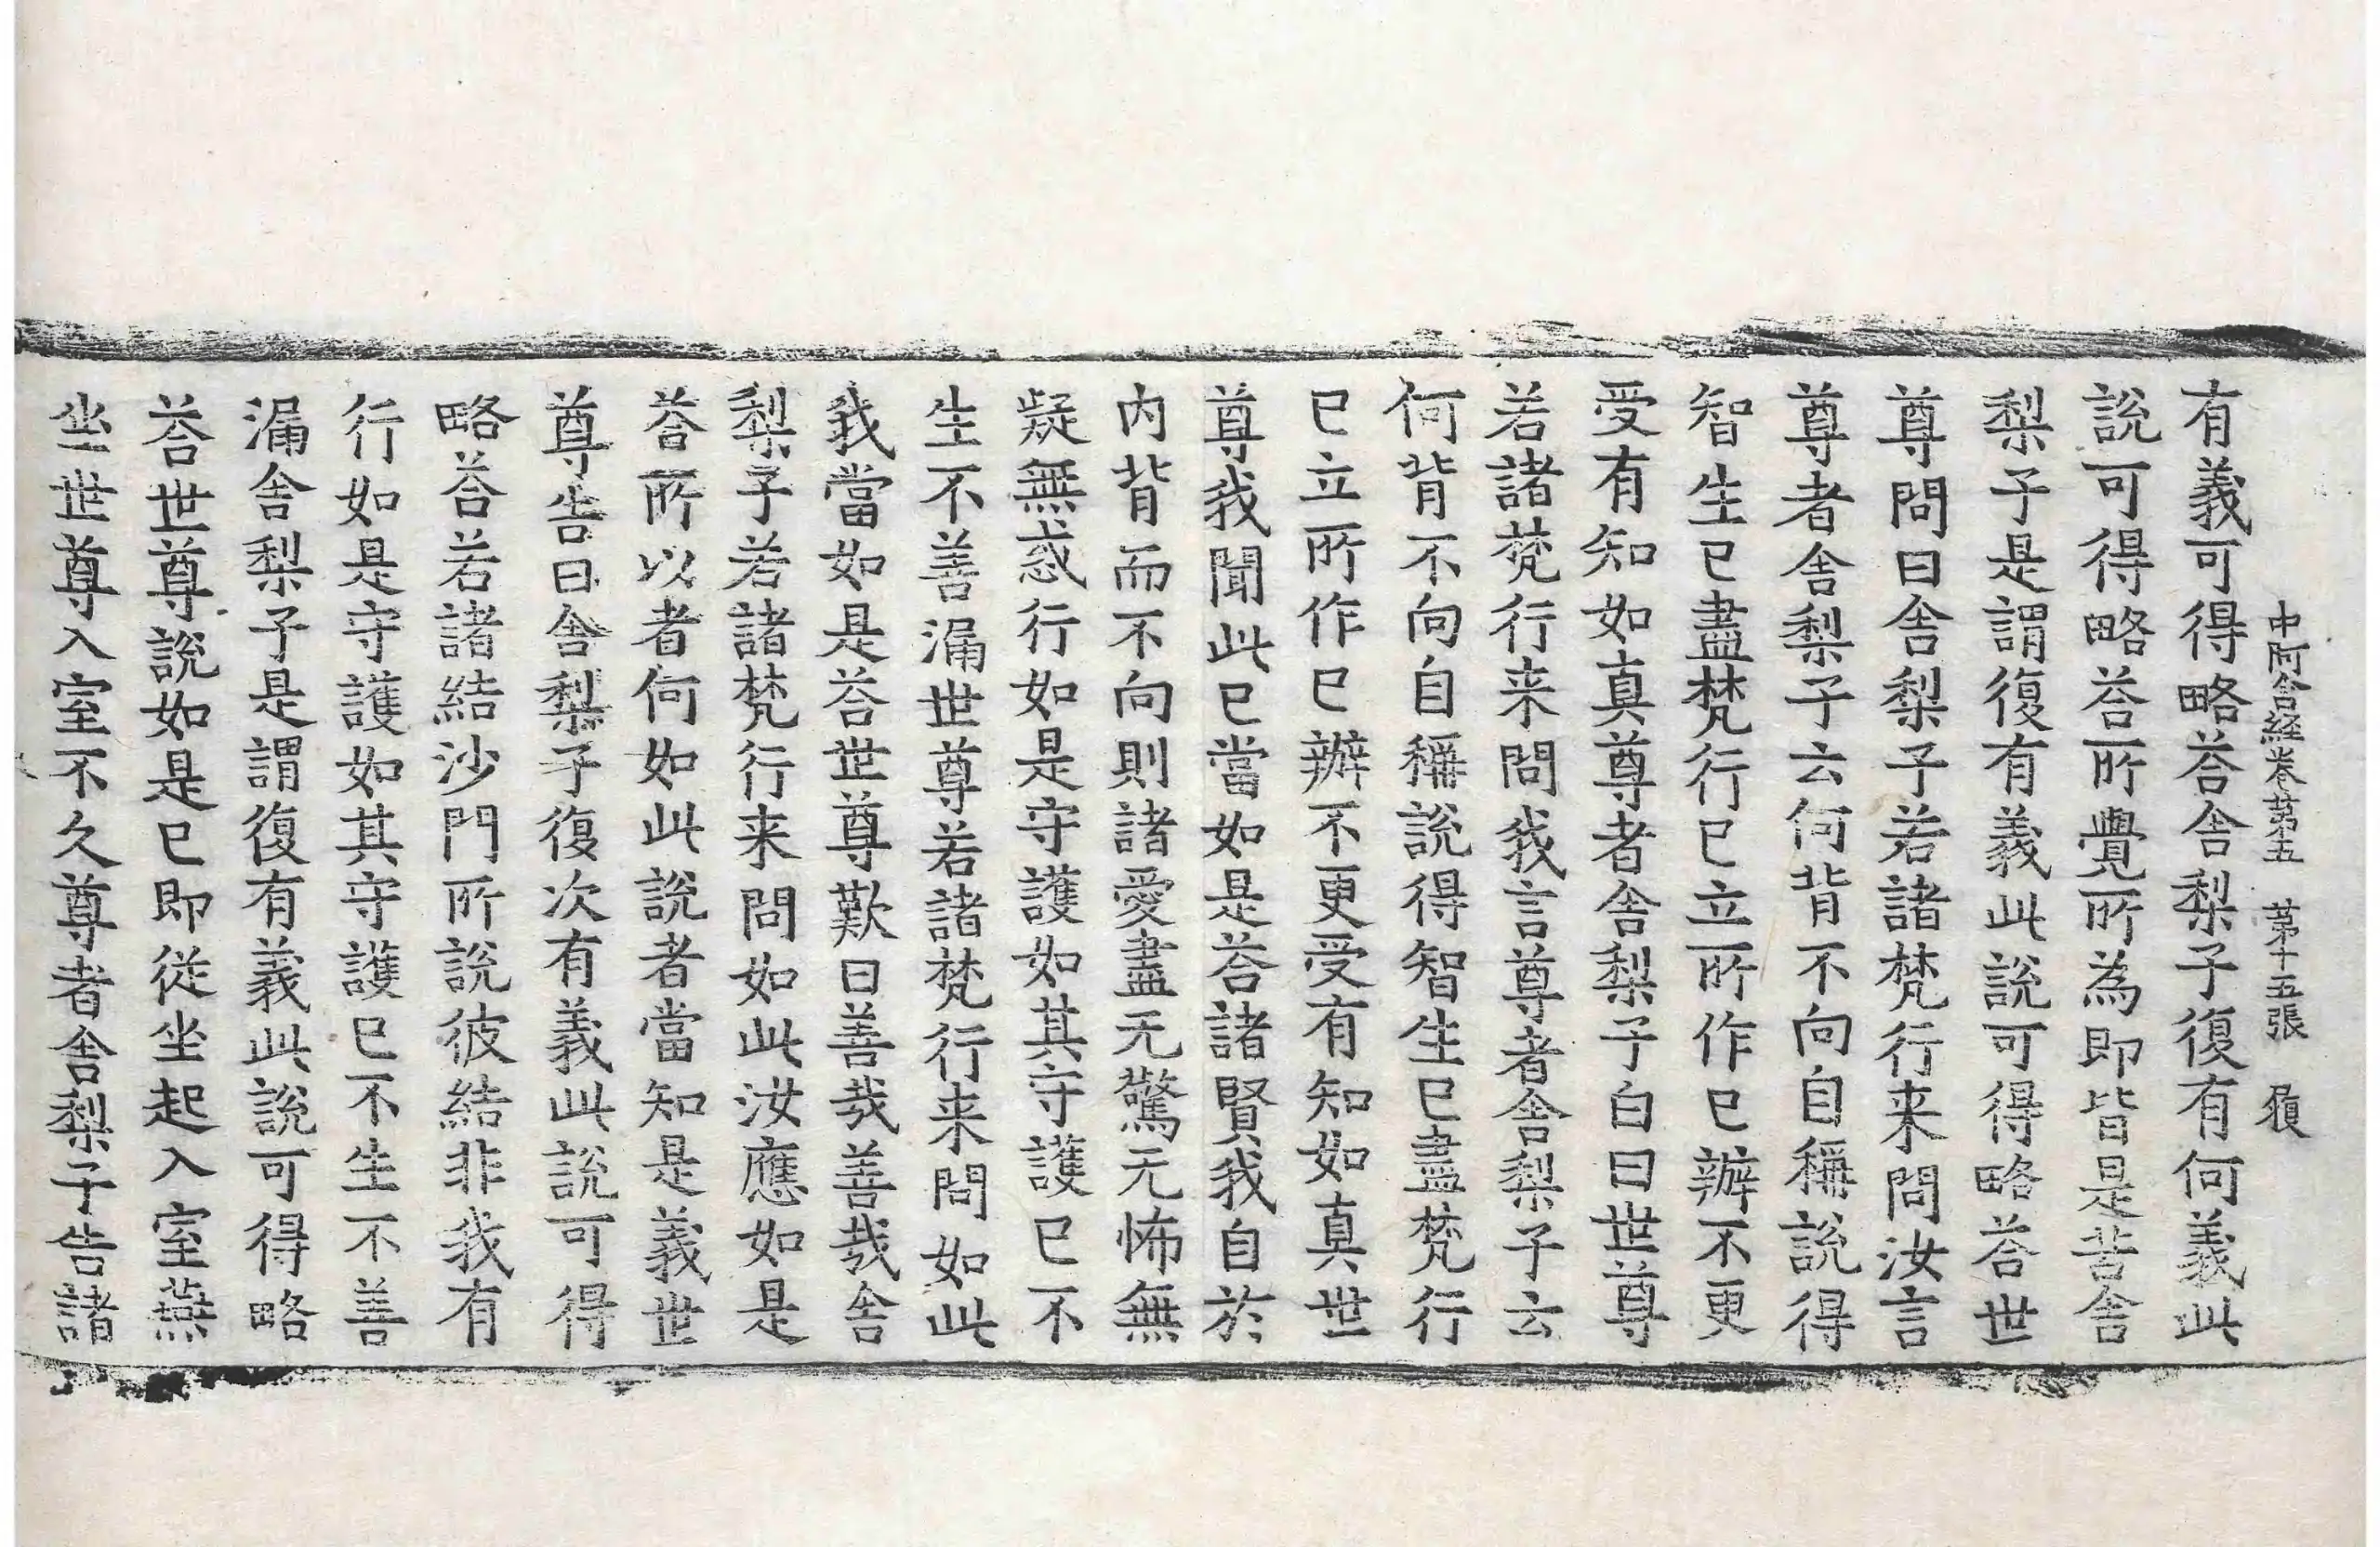 中阿含経卷第五　第十五張　㝡
有義可得略荅舎梨子復有何義此
說可得略荅所覺所為即皆是苦舎
梨子是謂復有義此說可得略荅世
尊問曰舎梨子若諸梵行来問汝言
尊者舎梨子云何背不向自稱說得
智生已盡梵行已立所作已辦不更
受有知如真尊者舎梨子白曰世尊
若諸梵行来問我言尊者舎梨子云
何背不向自稱說得智生已盡梵行
已立所作已辦不更受有知如真世
尊我聞此已當如是荅諸賢我自於
内背而不向則諸愛盡无驚无怖無
疑無惑行如是守護如其守護已不
生不善漏世尊若諸梵行来問如此
我當如是荅世尊歎曰善哉善哉舎
梨子若諸梵行来問如此汝應如是
荅所以者何如此說者當知是義世
尊告曰舎梨子復次有義此說可得
略荅若諸結沙門所說彼結非我有
行如是守護如其守護已不生不善
漏舎梨子是謂復有義此說可得略
荅世尊說如是已即從坐起入室燕
坐世尊入室不久尊者舎梨子告諸